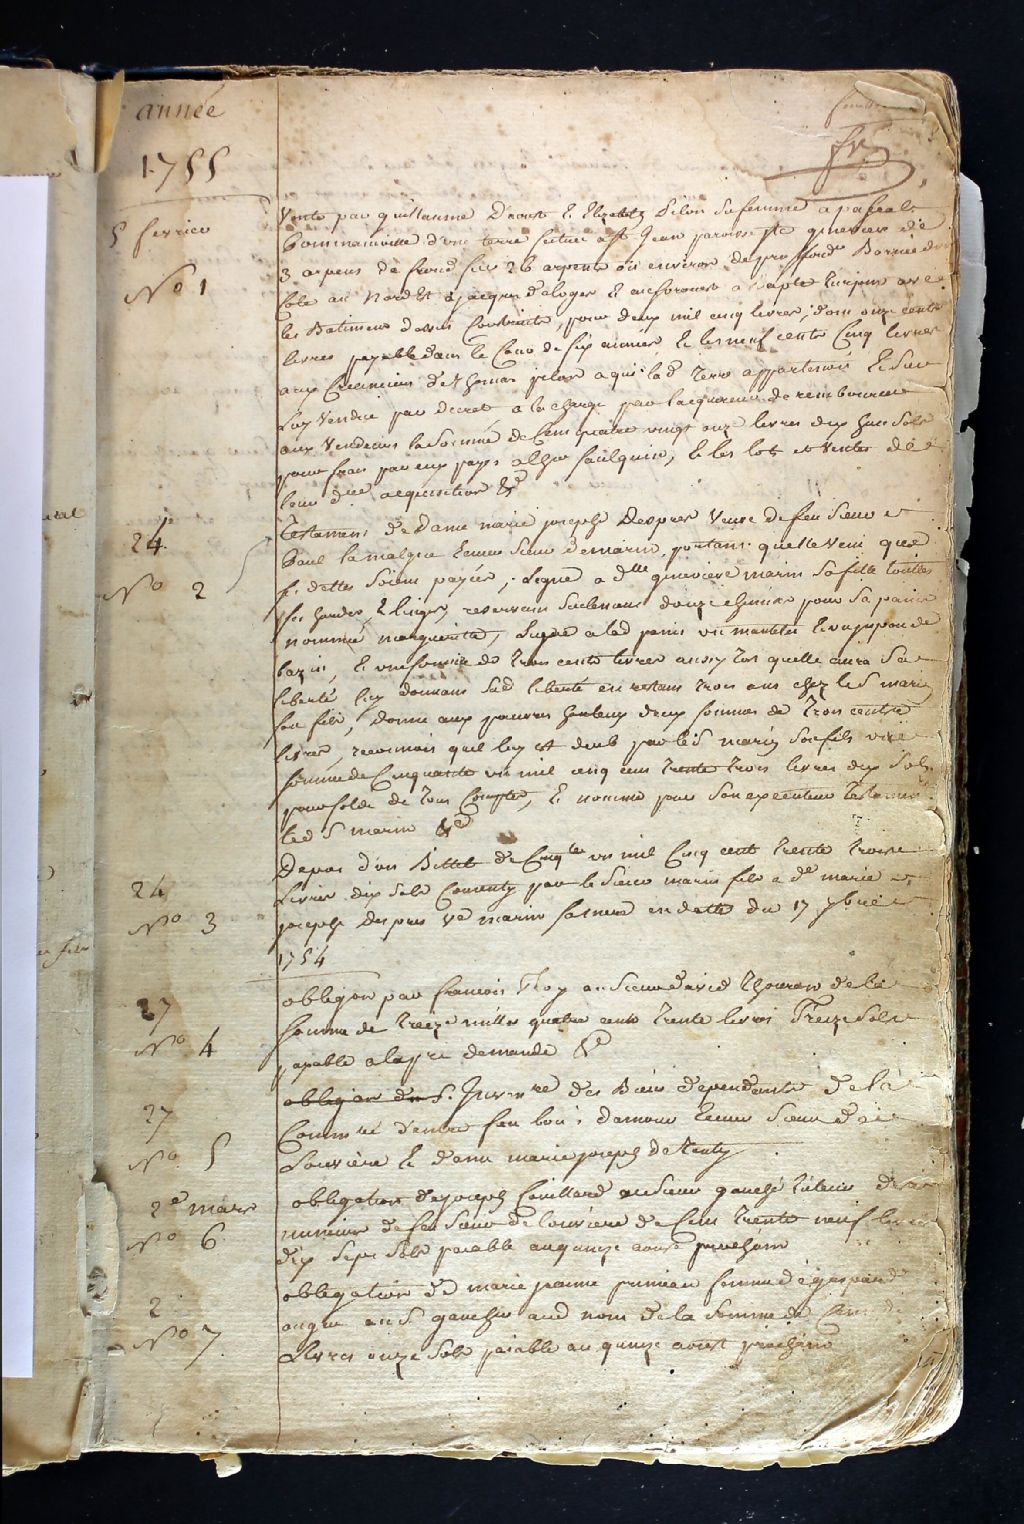 année
1755
5 fevrier
No 1
Vente par guillaume Drouet & Elizabeth pilon sa femme a pascal
d'une terre scituée a St Jean paroisse Ste genevieve de
3 arpens de front sur 26 arpents ou environ de proffond Bornée d'un
coté au Nord Est a Jacques daloger & au sorouest a
les Batimens dessus Construits, pour deux mil cinq livres, dont onze cents
livres payable dans le Cour de six années & les neuf cents Cinq livres
aux Creanciers de thomas pilon a qui lad terre appartenoit & sur
Luy Vendue par decret a la charge par lacquereur de rembourser
aux Vendeurs la somme de Cent quatre vingt onze livres dix huit sols
pour frais par eux payés a Me saulquin, & les lots et Ventes de
leur dte acquisition &e
24
No 2
Testament de dame marie joseph Despres Veuve de feu Sieur
Paul lamalgue Ecuier Sieur de marin, portant quelle Veut que
ses dettes Soient payées, Legue a dlle genevieve marin sa fille touttes
ses hardes & linges, reservant seulement douze chemises pour sa panise
nommée marguerite, Legue a lad panis un mantelet & un juppon de
bazin, & une somme de trois cents livres aussy tot quelle aura sa
liberté luy donnant sad liberté en restant trois ans chez le S marin
son fils, donne aux pauvres honteux deux sommes de trois cents
livres, reconnois quil luy est deub par le S marin son fils une
somme de Cinquante un mil cinq cent trente trois livres dix sols
pour solde de tous Comptes, & nomme pour son executeur testament
led S marin &e
24
No 3
Depos d'un Billet de Cinqte un mil Cinq cent trente trois
Livres dix sols Consenty par le Sieur marin fils a de marie
joseph despres ve marin sa mere en datte du 17 7bre
1754
27
No 4
obligon par francois Roy au Sieur david thouron de la
somme de treize milles quatre cent trente livres Treize sols
payable a la pre demande &e
27
No 5
obligon du S. Invenre des Biens dependants de la
Commté d'entre feu louis damour Ecuier Sieur de
Louviere & dame marie joseph de tenty
2e mars
No 6
obligation de joseph Couillard au Sieur gauché tuteur des
mineurs de feu Sieur de louviere de Cent trente neuf livres
dix sept sols payable au quinze aoust prochain
2
No 7
obligation de marie jeanne primeau femme de gaspard
au S gaucher aud nom de la somme de Cent
Livres onze sols paiable au quinze aoust prochain